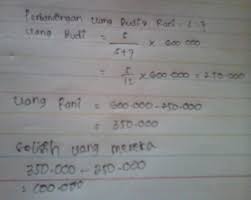 Perbandingan Uang Budi & Rani = 5 : 7
Uang Budi = 5/5+7 × 600.000
= 5/12 × 600.000 = 250.000
Uang Rani = 600.000 - 250.000
= 350.000
Selisih uang mereka
350.000 - 250.000
= 100.000